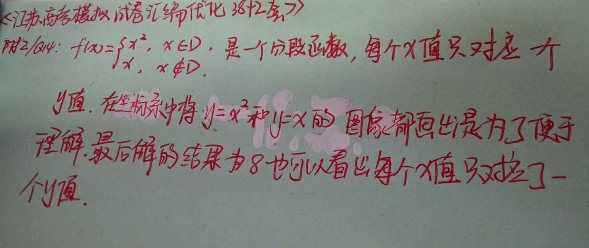 《江苏高考模拟试卷汇编优化38+2套》
附2/Q14: f(x)={x², x∈D, 是一个分段函数, 每个x值只对应一个
x, x∉D.
y值. 在坐标系中将y=x²和y=x的图象都画出是为了便于
理解. 最后解的结果为8也可以看出每个x值只对应了一
个y值.